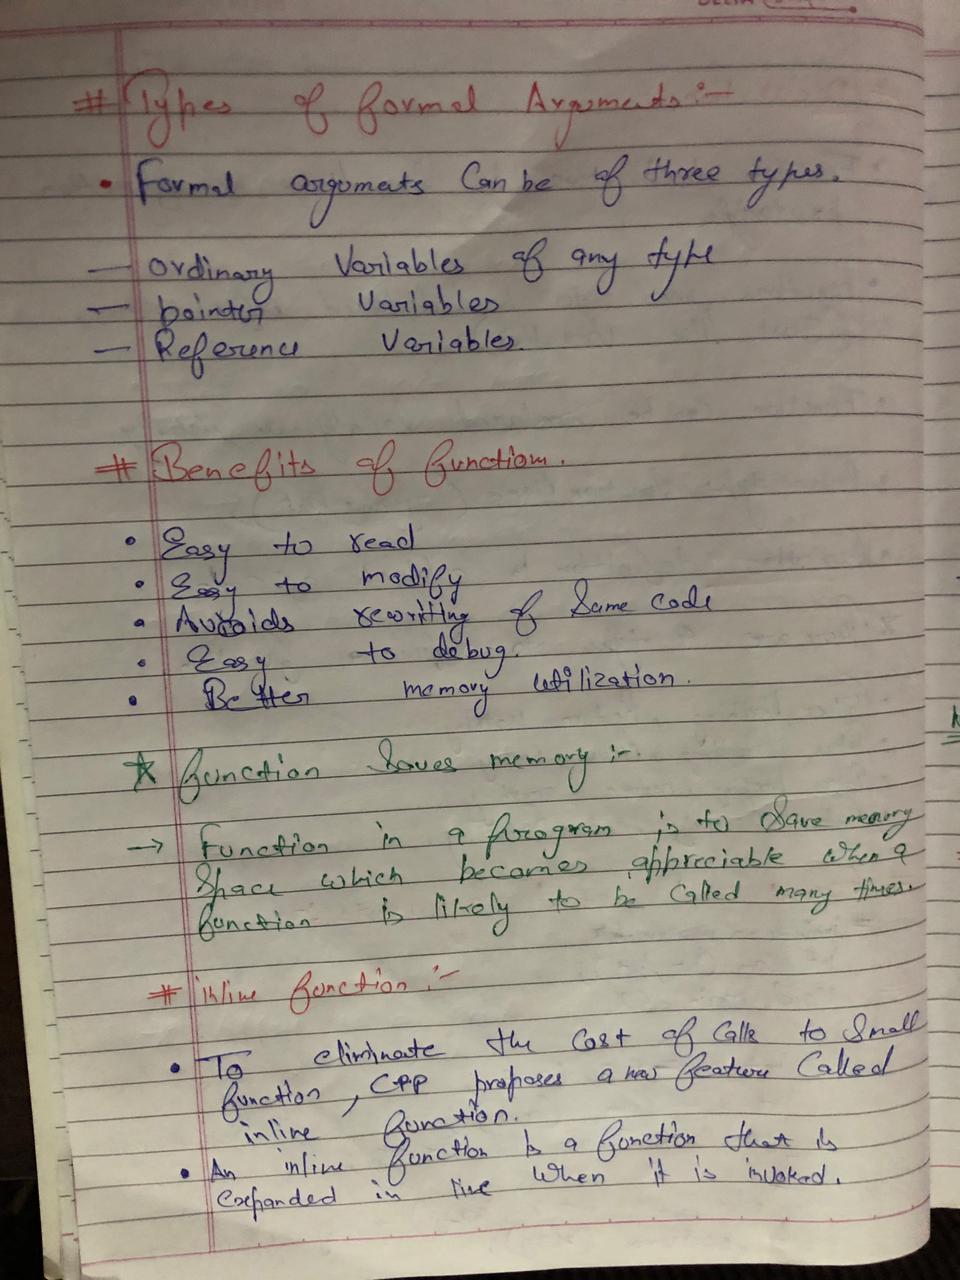 # Types of formal Arguments :-
• Formal arguments Can be of three types.
— Ordinary Variables of any type
— pointer Variables
— Reference Variables.
# Benefits of function.
• Easy to read
• Easy to modify
• Avoids rewriting of Same code
• Easy to debug.
• Better memory utilization.
★ function Saves memory :-
→ Function in a program is to Save memory
Space which becomes appreciable when a
function is likely to be Called many times.
# inline function :-
• To eliminate the Cost of Calls to Small
function, CPP proposes a new feature Called
inline function.
• An inline function is a function that is
expanded in line when it is invoked.